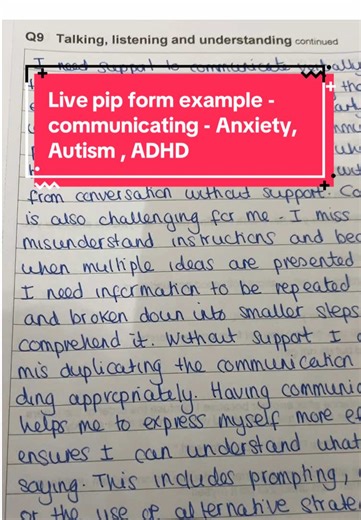 Q9 Talking, listening and understanding continued
I need support to communicate
Live pip form example -
communicating - Anxiety,
Autism , ADHD
from conversation without support.
is also challenging for me - I miss
misunderstand instructions and
when multiple ideas are presented
I need information to be repeated
and broken down into smaller steps
comprehend it. Without support I
mis duplicating the communication
ding appropriately. Having
helps me to express myself more
ensures I can understand what
saying. This includes prompting,
or the use of alternative